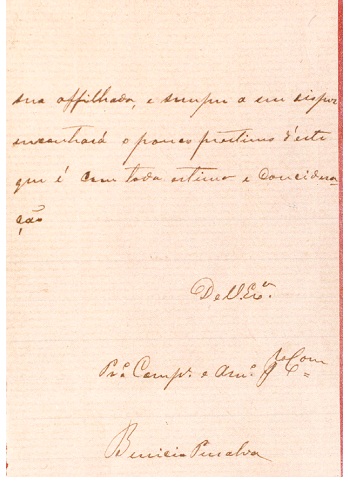 sua affilhada, e sempre a seu dispor
encontrará o pouco prestimo d'este
que é com toda estima e concidera-
ção
De V. Exᵃ.
Prᵉ Compᵉ. e Amᵒ.
Benicio Penalva